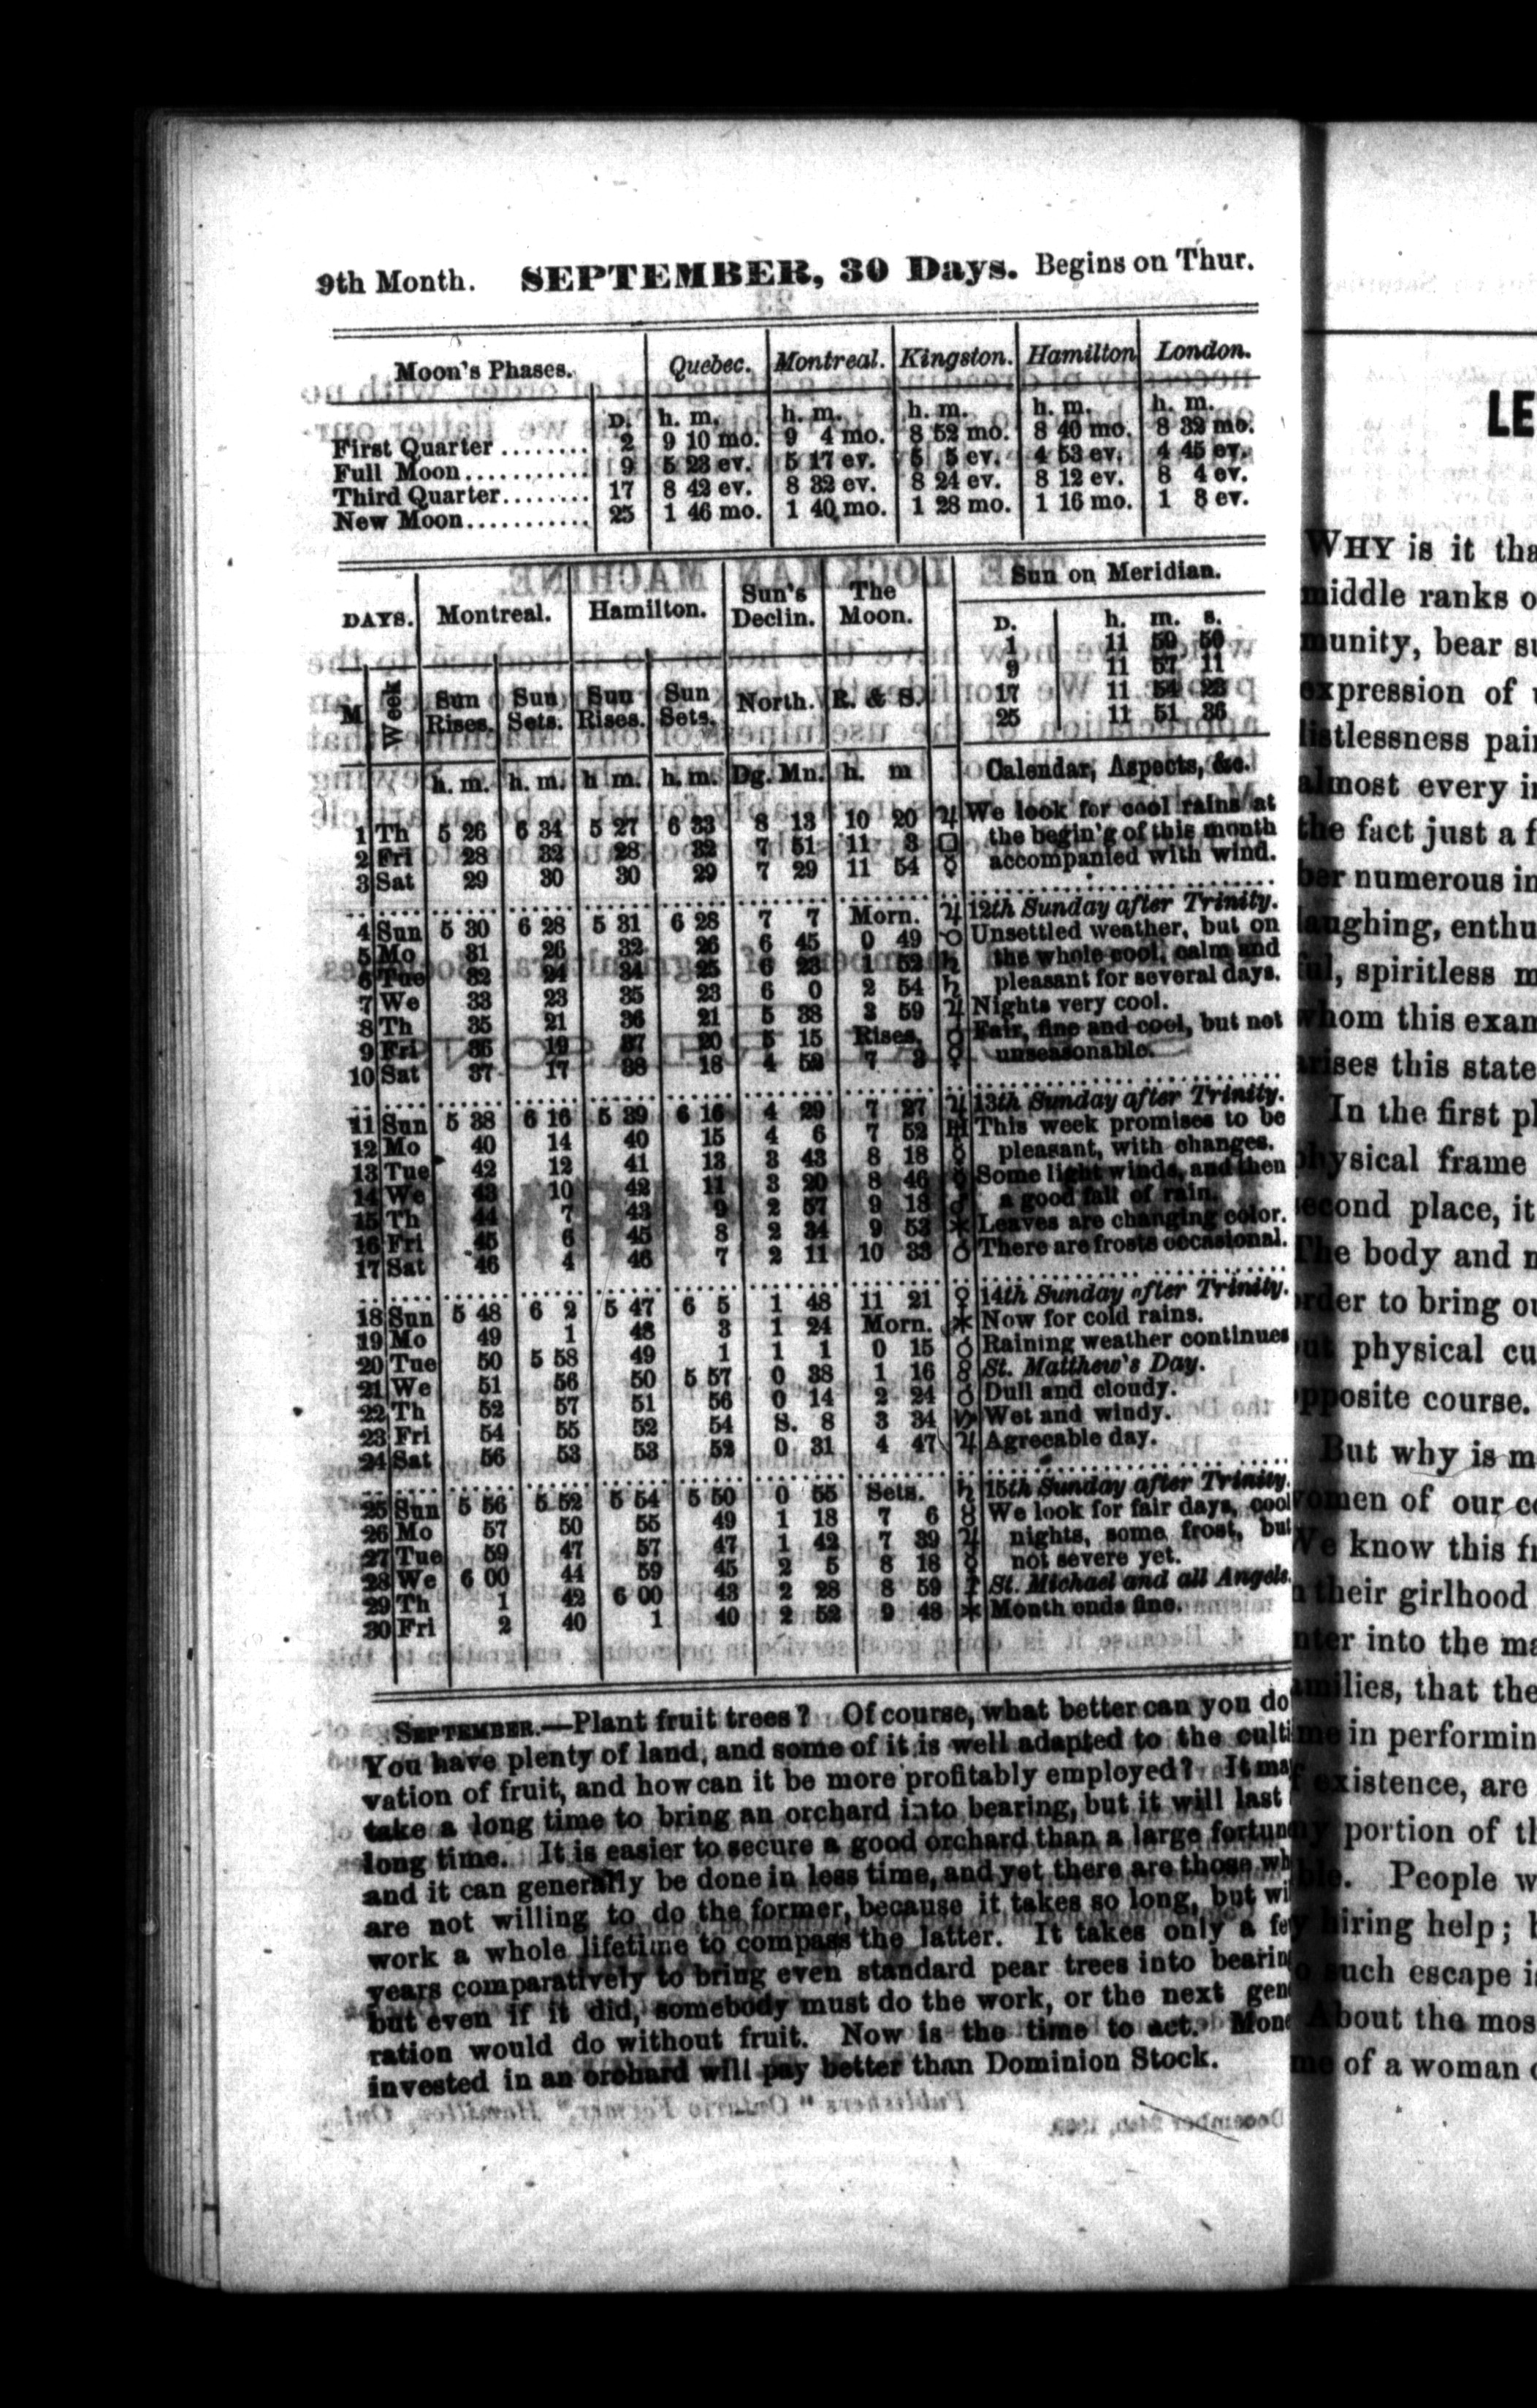 9th Month. SEPTEMBER, 30 Days. Begins on Thur.
Moon's Phases. Quebec. Montreal. Kingston. Hamilton London.
D. h. m. h. m. h. m. h. m. h. m.
First Quarter ........ 2 9 10 mo. 9 4 mo. 8 52 mo. 8 40 mo. 8 32 mo.
Full Moon........... 9 5 23 ev. 5 17 ev. 5 5 ev. 4 53 ev. 4 45 ev.
Third Quarter........ 17 8 42 ev. 8 32 ev. 8 24 ev. 8 12 ev. 8 4 ev.
New Moon........... 25 1 46 mo. 1 40 mo. 1 28 mo. 1 16 mo. 1 8 ev.
DAYS. Montreal. Hamilton. Sun's Declin. The Moon. Sun on Meridian.
D. h. m. s.
1 11 59 50
9 11 57 11
17 11 54 23
25 11 51 36
M Week Sun Rises. Sun Sets. Sun Rises. Sun Sets. North. R. & S.
h. m. h. m. h m. h. m. Dg. Mn. h. m Calendar, Aspects, &c.
1 Th 5 26 6 34 5 27 6 33 8 13 10 20 ♃ We look for cool rains at
2 Fri 28 32 28 32 7 51 11 3 □ the begin'g of this month
3 Sat 29 30 30 29 7 29 11 54 ☿ accompanied with wind.
4 Sun 5 30 6 28 5 31 6 28 7 7 Morn. ♃ 12th Sunday after Trinity.
5 Mo 31 26 32 26 6 45 0 49 Unsettled weather, but on
6 Tue 32 24 34 25 6 23 1 52 ♄ the whole cool, calm and
7 We 33 23 35 23 6 0 2 54 ♄ pleasant for several days.
8 Th 35 21 36 21 5 38 3 59 ♃ Nights very cool.
9 Fri 36 19 37 20 5 15 Rises. Fair, fine and cool, but not
10 Sat 37 17 38 18 4 52 7 3 ♀ unseasonable.
11 Sun 5 38 6 16 5 39 6 16 4 29 7 27 ♃ 13th Sunday after Trinity.
12 Mo 40 14 40 15 4 6 7 52 This week promises to be
13 Tue 42 12 41 13 3 43 8 18 pleasant, with changes.
14 We 43 10 42 11 3 20 8 46 Some light winds, and then
15 Th 44 7 43 9 2 57 9 18 a good fall of rain.
16 Fri 45 6 45 8 2 34 9 53 * Leaves are changing color.
17 Sat 46 4 46 7 2 11 10 33 There are frosts occasional.
18 Sun 5 48 6 2 5 47 6 5 1 48 11 21 ♀ 14th Sunday after Trinity.
19 Mo 49 1 48 3 1 24 Morn. * Now for cold rains.
20 Tue 50 5 58 49 1 1 1 0 15 Raining weather continues
21 We 51 56 50 5 57 0 38 1 16 St. Matthew's Day.
22 Th 52 57 51 56 0 14 2 24 Dull and cloudy.
23 Fri 54 55 52 54 S. 8 3 34 Wet and windy.
24 Sat 56 53 53 52 0 31 4 47 ♃ Agreeable day.
25 Sun 5 56 5 52 5 54 5 50 0 55 Sets. ♄ 15th Sunday after Trinity.
26 Mo 57 50 55 49 1 18 7 6 We look for fair days, cool
27 Tue 59 47 57 47 1 42 7 39 ♃ nights, some frost, but
28 We 6 00 44 59 45 2 5 8 18 not severe yet.
29 Th 1 42 6 00 43 2 28 8 59 St. Michael and all Angels.
30 Fri 2 40 1 40 2 52 9 48 * Month ends fine.
SEPTEMBER.—Plant fruit trees? Of course, what better can you do
You have plenty of land, and some of it is well adapted to the culti
vation of fruit, and how can it be more profitably employed? It may
take a long time to bring an orchard into bearing, but it will last
long time. It is easier to secure a good orchard than a large fortun
and it can generally be done in less time, and yet there are those wh
are not willing to do the former, because it takes so long, but wi
work a whole lifetime to compass the latter. It takes only a fe
years comparatively to bring even standard pear trees into bearin
but even if it did, somebody must do the work, or the next gen
ration would do without fruit. Now is the time to act. Mone
invested in an orchard will pay better than Dominion Stock.
LE
WHY is it tha
middle ranks o
munity, bear su
expression of
listlessness pai
almost every i
the fact just a f
ber numerous in
laughing, enthu
ful, spiritless m
whom this exam
arises this state
In the first pl
physical frame
second place, it
The body and
order to bring ou
out physical cu
opposite course.
But why is m
women of our c
We know this f
their girlhood
enter into the ma
families, that the
me in performin
existence, are
portion of th
ble. People w
hiring help;
such escape i
About the mos
me of a woman